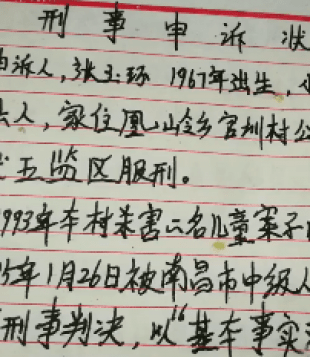 刑事申诉状
诉人,张玉环 1967年出生,
人,家住凰岭乡官圳村公
五监区服刑。
993年本村杀害二名儿童案子
5年1月26日被南昌市中级人
刑事判决,以"基本事实